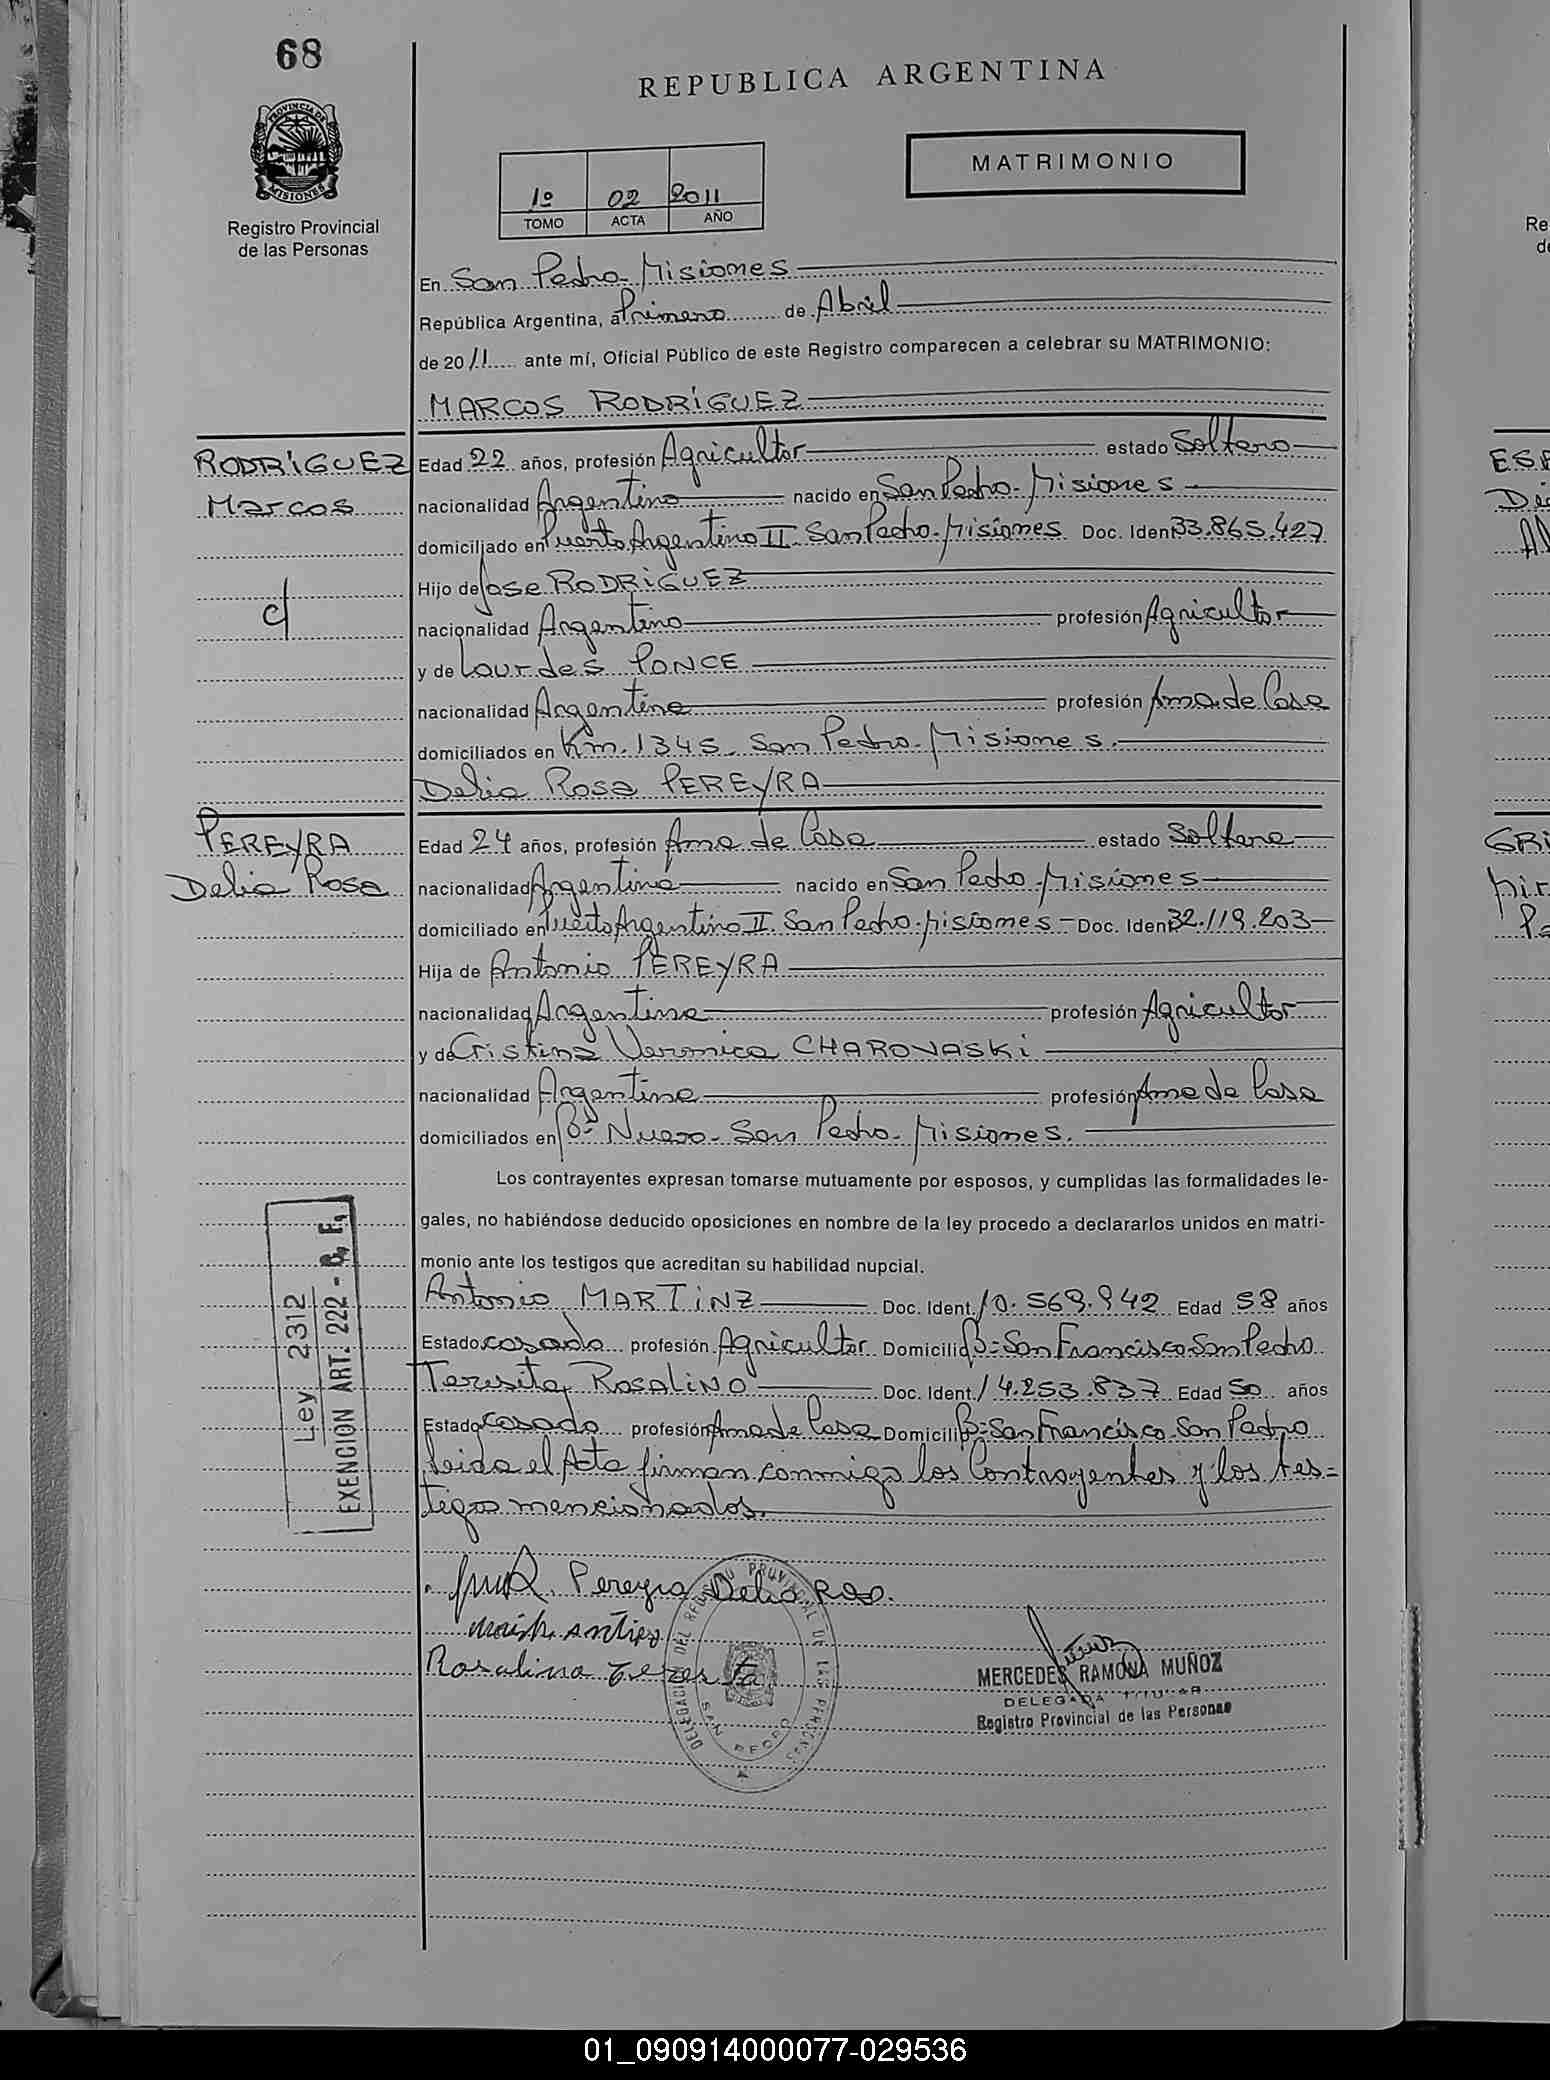 68
REPUBLICA ARGENTINA
PROVINCIA DE
MISIONES
Registro Provincial
de las Personas
MATRIMONIO
1º 02 2011
TOMO ACTA AÑO
En San Pedro-Misiones
República Argentina, a Primero de Abril
de 2011 ante mí, Oficial Público de este Registro comparecen a celebrar su MATRIMONIO:
MARCOS RODRíGUEZ
RODRíGUEZ
Marcos
c/
Edad 22 años, profesión Agricultor estado Soltero
nacionalidad Argentino nacido en San Pedro-Misiones
domiciliado en Puerto Argentino II-San Pedro-Misiones Doc. Iden 33.865.427
Hijo de Jose RODRíGUEZ
nacionalidad Argentino profesión Agricultor
y de Lourdes PONCE
nacionalidad Argentina profesión Ama de Casa
domiciliados en Km.1345-San Pedro-Misiones.
Delia Rosa PEREYRA
PEREYRA
Delia Rosa
Edad 24 años, profesión Ama de Casa estado Soltera
nacionalidad Argentina nacido en San Pedro-Misiones
domiciliado en Puerto Argentino II-San Pedro-Misiones- Doc. Iden 32.119.203
Hija de Antonio PEREYRA
nacionalidad Argentina profesión Agricultor
y de Cristina Veronica CHAROVASKi
nacionalidad Argentina profesión Ama de Casa
domiciliados en Bº Nuevo-San Pedro-Misiones.
Los contrayentes expresan tomarse mutuamente por esposos, y cumplidas las formalidades le-
gales, no habiéndose deducido oposiciones en nombre de la ley procedo a declararlos unidos en matri-
monio ante los testigos que acreditan su habilidad nupcial.
Ley 2312
EXENCION ART. 222 -
Antonio MARTiNZ Doc. Ident. 10.569.942 Edad 58 años
Estado casado profesión Agricultor Domicilio Bº San Francisco San Pedro
Teresita ROSALiNO Doc. Ident. 14.253.837 Edad 50 años
Estado casado profesión Ama de Casa Domicilio Bº San Francisco-San Pedro
Leida el Acta firman conmigo los Contrayentes y los tes=
tigos mencionados.
Pereyra Delia Rosa.
Rosalino Teresita
DELEGACION DEL REGISTRO PROVINCIAL DE LAS PERSONAS
SAN PEDRO
MERCEDES RAMONA MUÑOZ
DELEGADA TITULAR
Registro Provincial de las Personas
Re
ESP
GRI
01_090914000077-029536